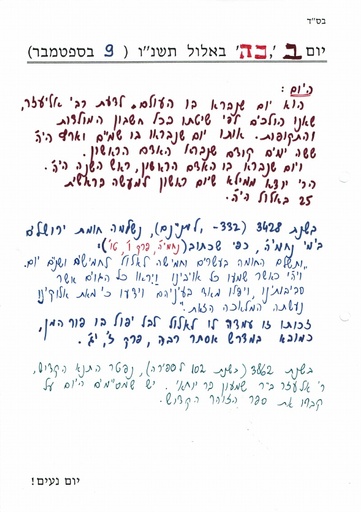 בס"ד
יום ב', 'כה' באלול תשנ"ו ( 9 בספטמבר)
היום:
הוא יום שנברא בו העולם. לדעת רבי אליעזר,
שאנו הולכים לפי שיטתו בכל חשבון המולדות
והתקופות. אותו יום שנבראו בו שמים וארץ היה
ששה ימים קודם שנברא האדם הראשון.
ויום שנברא בו האדם הראשון, ראש השנה היה.
הרי יוצא ממילא שיום ראשון למעשה בראשית
25 באלול היה.
בשנת 3428 (332- לפנה"ס), נשלמה חומת ירושלים
בימי נחמיה, כפי שכתוב (נחמיה, פרק ו', טו'):
"ותשלם החומה בעשרים וחמישה לאלול לחמישים ושנים יום.
ויהי כאשר שמעו כל אויבינו ויראו כל הגוים אשר
סביבותינו, ויפלו מאוד בעיניהם וידעו כי מאת אלוקינו
נעשתה המלאכה הזאת."
זכותו זו עמדה לו לאלול לבל יפול בו פור המן,
כמובא במדרש אסתר רבה, פרק ז', יג'.
בשנת 3862 (בשנת 102 לספירה), נפטר התנא הקדוש,
ר' אלעזר ב"ר שמעון בר יוחאי. יש שמסיימים היום על
קברו את ספר הזוהר הקדוש.
יום נעים!